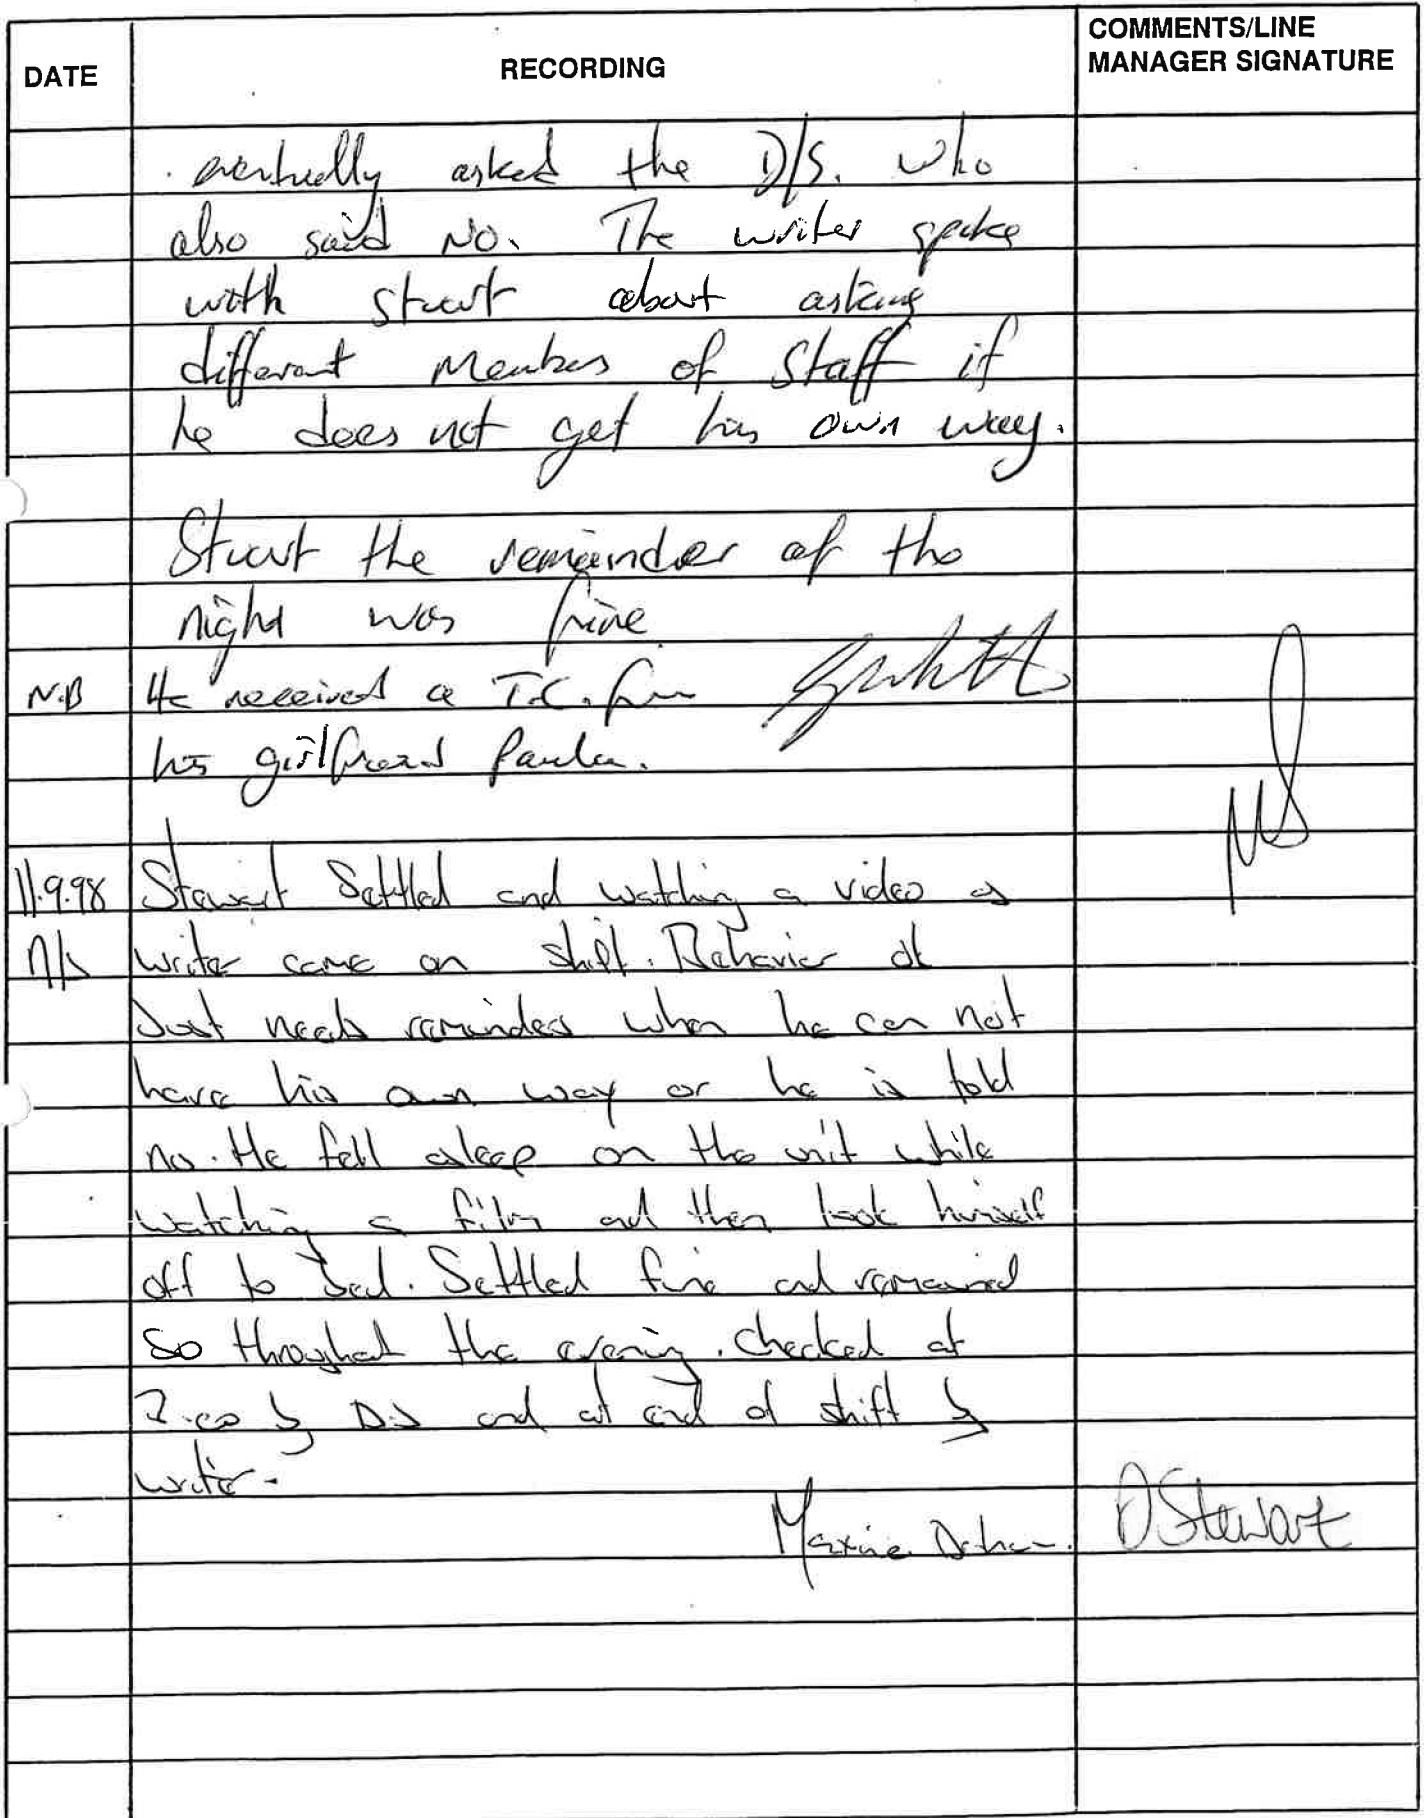 DATE RECORDING COMMENTS/LINE MANAGER SIGNATURE
eventually asked the D/S. who
also said No. The writer spoke
with Stuart about asking
different Members of Staff if
he does not get his own way.
Stuart the remainder of the
night was fine
N.B He received a T.C. from
his girlfriend Paula.
11.9.98 Stewart Settled and watching a video as
N/S writer came on shift. Behavior ok
Just needs reminded when he can not
have his own way or he is told
no. He fell asleep on the unit while
watching a film and then took himself
off to bed. Settled fine and remained
So throughout the evening. Checked at
by and at end of shift by
writer.
Maxine DStewart